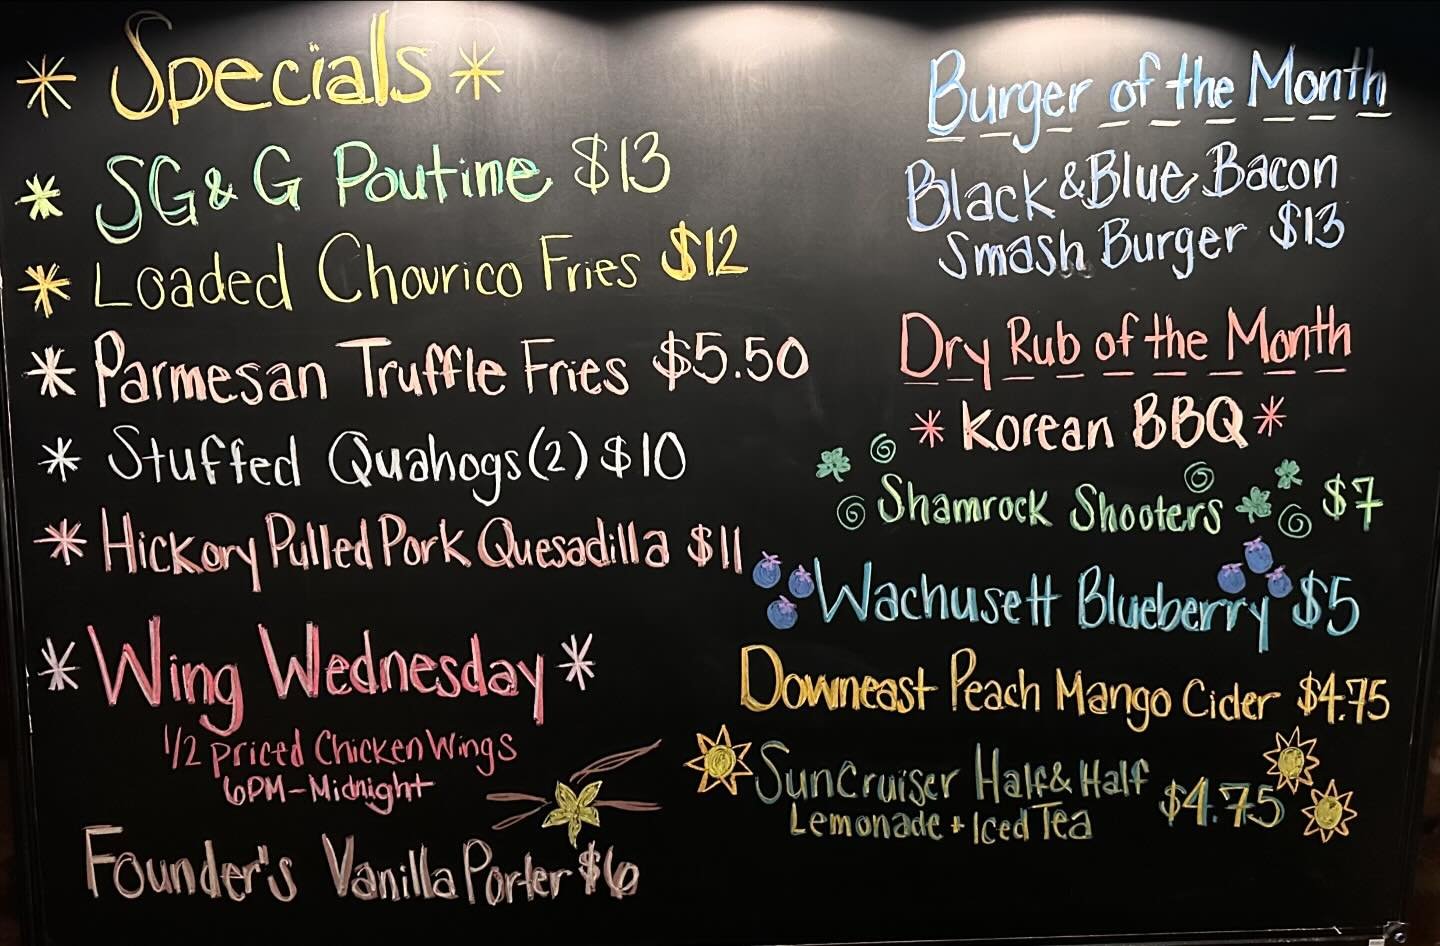 Specials
SG & G Poutine $13
Loaded Chourico Fries $12
Parmesan Truffle Fries $5.50
Stuffed Quahogs (2) $10
Hickory Pulled Pork Quesadilla $11
Wing Wednesday
1/2 priced Chicken Wings
6PM - Midnight
Founder's Vanilla Porter $6
Burger of the Month
Black & Blue Bacon
Smash Burger $13
Dry Rub of the Month
Korean BBQ
Shamrock Shooters $7
Wachusett Blueberry $5
Downeast Peach Mango Cider $4.75
SunCruiser Half & Half $4.75
Lemonade + Iced Tea